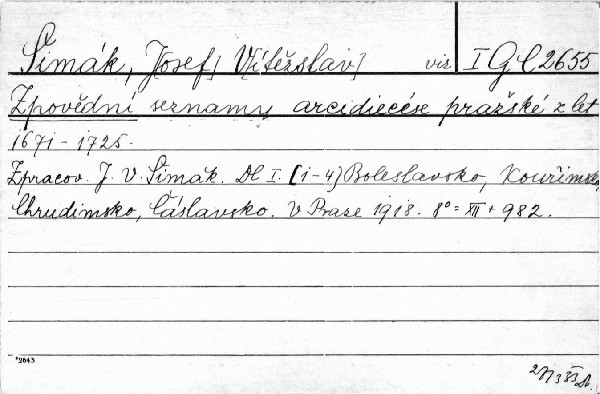 Šimák, Josef] Vítězslav] viz I G C 2655
Zpovědní seznamy arcidiecése pražské z let
1671-1725.
Zpracov. J. V. Šimák. Díl I. [1-4] Boleslavsko, Kouřimsko,
Chrudimsko, Čáslavsko. V Praze 1918. 8° = XII + 982.
*2643